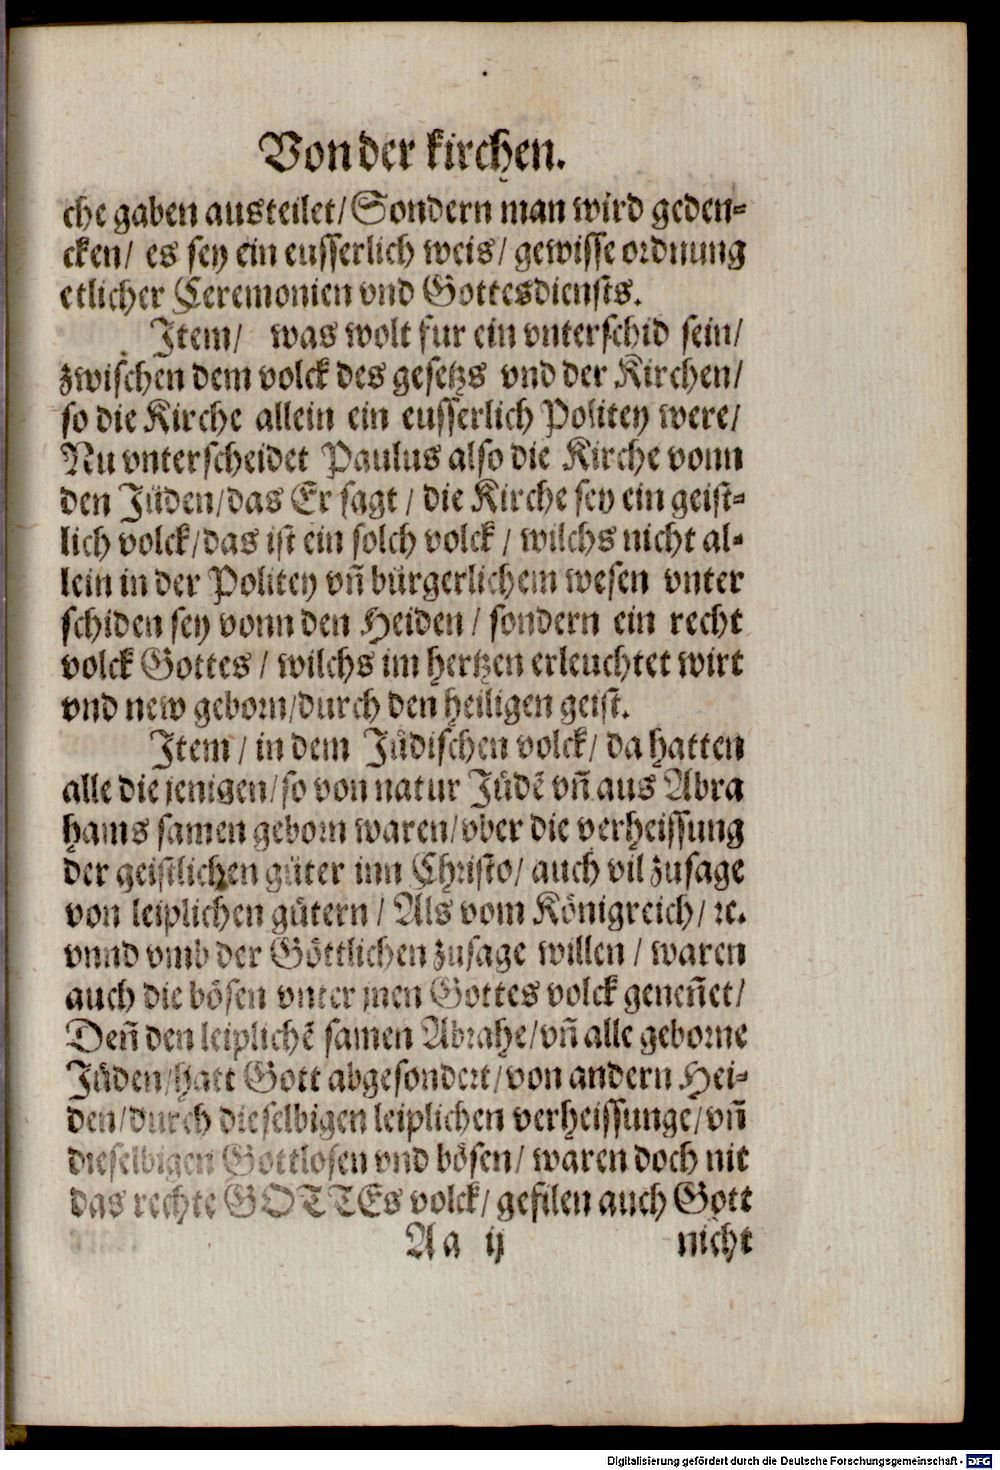 Von der kirchen.
che gaben austeilet/ Sondern man wird geden-
cken/ es sey ein eusserlich weis/ gewisse ordnung
etlicher Ceremonien vnd Gottesdiensts.
Item/ was wolt fur ein vnterschid sein/
zwischen dem volck des gesetzs vnd der Kirchen/
so die Kirche allein ein eusserlich Politey were/
Nu vnterscheidet Paulus also die Kirche vonn
den Jüden/ das Er sagt / die Kirche sey ein geist-
lich volck/ das ist ein solch volck / wilchs nicht al-
lein in der Politey vñ bürgerlichem wesen vnter
schiden sey vonn den Heiden / sondern ein recht
volck Gottes / wilchs im hertzen erleuchtet wirt
vnd new geborn/ durch den heiligen geist.
Item / in dem Jůdischen volck/ da hatten
alle die jenigen/ so von natur Jůdẽ vñ aus Abra
hams samen geborn waren/ vber die verheissung
der geistlichen gůter inn Christo/ auch vil zusage
von leiplichen gůtern / Als vom Kőnigreich/ ꝛc.
vnnd vmb der Gőttlichen zusage willen / waren
auch die bősen vnter jnen Gottes volck geneñet/
Deñ den leiplichẽ samen Abrahe/ vñ alle geborne
Jůden/ hatt Gott abgesondert/ von andern Hei-
den/ durch dieselbigen leiplichen verheissunge/ vñ
dieselbigen Gottlosen vnd bősen/ waren doch nit
das rechte GOTTEs volck/ gefilen auch Gott
Aa ij nicht
Digitalisierung gefördert durch die Deutsche Forschungsgemeinschaft - DFG